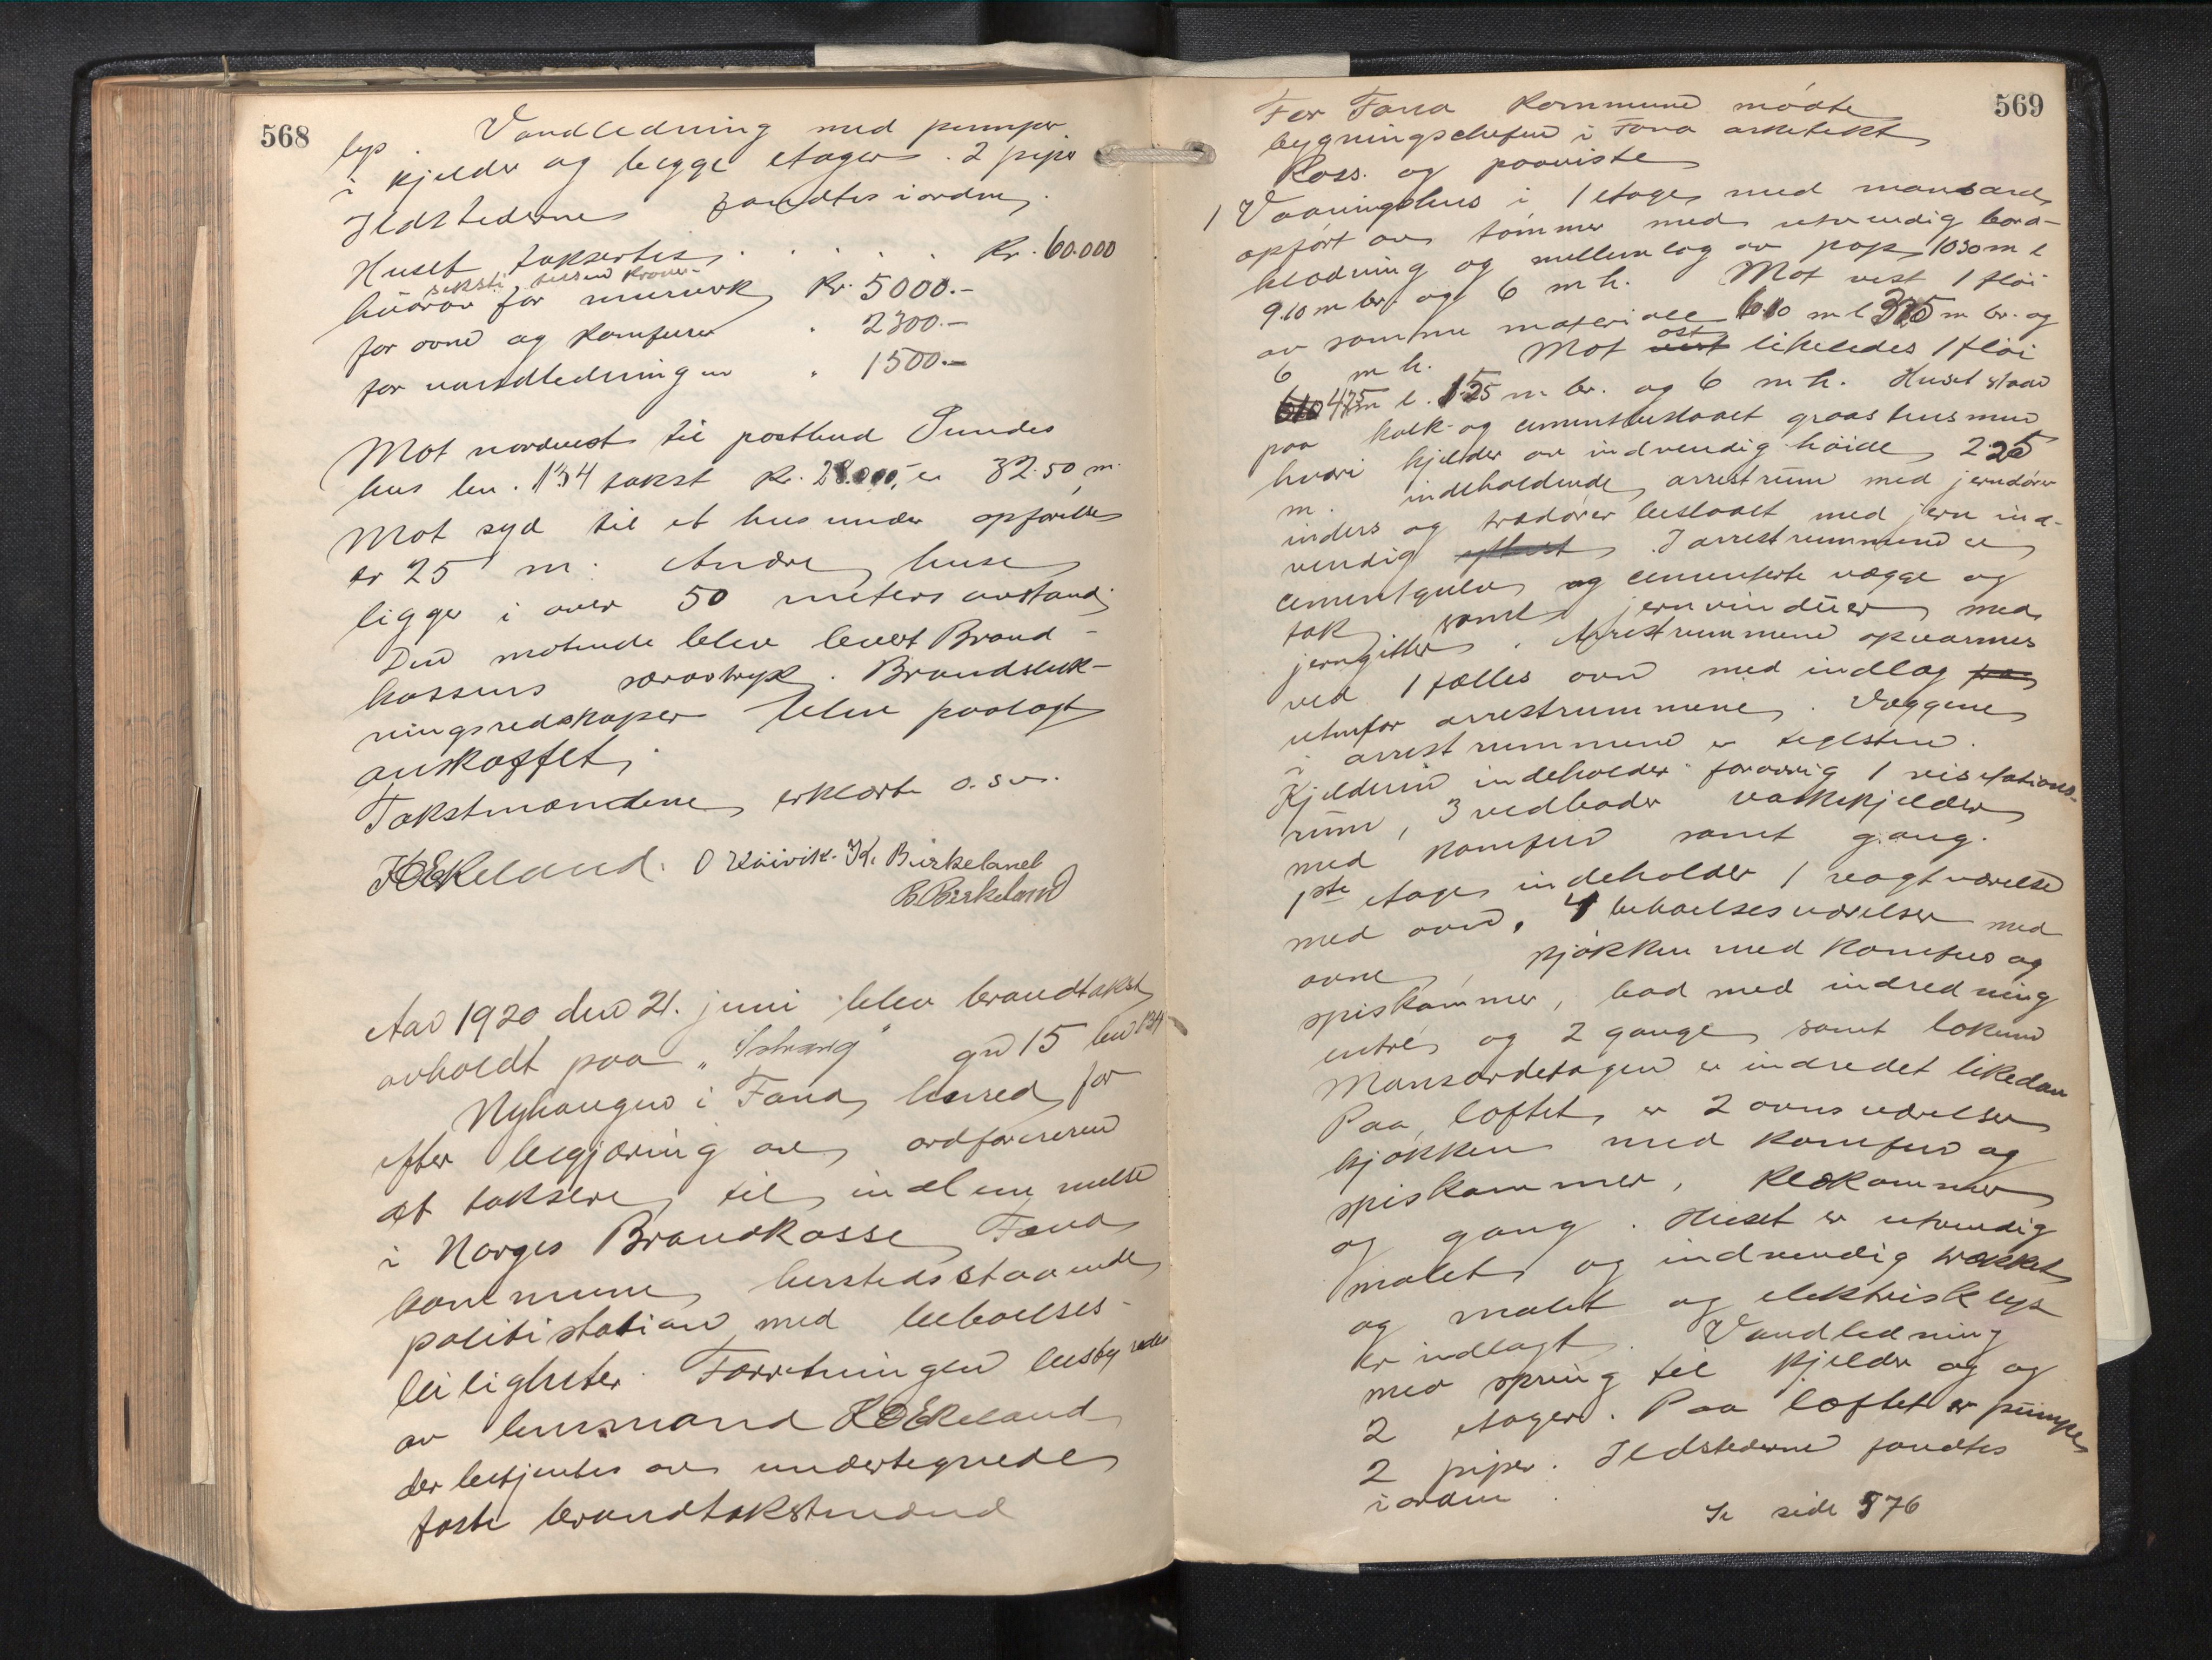 568
lys. Vandledning med pumper
i kjelder og begge etager. 2 piper
Ildstederne fandtes i orden.
Huset taksertes . . . . . Kr. 60.000
seksti tusen kroner
hvorav for murverk Kr. 5000.-
for ovne og komfurer " 2300.-
for vandledningen " 1500.-
Mot nordvest til postbud Sundes
hus bn. 134 takst Kr. 28.000,- er 32.50 m.
Mot syd til et hus under opførelse
er 25 m. Andre huse
ligger i over 50 meters avstand.
Den møtende blev levert Brand-
kassens særavtryk. Brandsluk-
ningsredskaper blev paalagt
anskaffet.
Takstmændene erklærte o.s.v.
Ekeland. O Køivik. K. Birkeland
B Birkeland
Aar 1920 den 21. juni blev brandtakst
avholdt paa " " gn 15 bn 134
Nyhaugen i Fana herred for
efter begjæring av ordføreren
at taksere til indlemmelse
i Norges Brandkasse Fana
kommune hersteds staaende
politistation med beboelses-
leiligheter. Forretningen bestyredes
av lensmand Ekeland
der betjentes av undertegnede
faste brandtakstmænd
569
For Fana kommune mødte
bygningschefen i Fana arkitekt
Ross. og paaviste
1 Vaaningshus i 1 etage med mansard
opført av tømmer med utvendig bord-
klædning og mellemlag av pap 10.30 m l
9.10 m br. og 6 m h. Mot vest 1 fløi
av samme materiale 6.10 m l 3.75 m br. og
6 m h. Mot vest øst likeledes 1 fløi
610 4.75 m l. 1.25 m br. og 6 m h. Huset staar
paa kalk- og cementbeslaaet graastensmur
hvori kjelder av indvendig høide 2.25
m. indeholdende arrestrum med jerndører
inders og trædører beslaaet med jern ind-
vendig . I arrestrummene er
cementgulv og cementerte vægge og
tak samt jernvinduer med
jerngitter. Arrestrummene opvarmes
ved 1 fælles ovn med indlæg
utenfor arrestrummene. Væggene
i arrestrummene er teglsten.
Kjelderen indeholder forøvrig 1 visitations-
rum, 3 vedboder vaskekjelder
med komfur samt gang.
1ste etage indeholder 1 vagtværelse
med ovn, 4 beboelsesværelser med
ovne, kjøkken med komfur og
spiskammer, bad med indredning
entré og 2 gange samt lokum
Mansardetagen er indredet likedan
Paa loftet er 2 ovnsværelser
kjøkken med komfur og
spiskammer, klækammer
og gang. Huset er utvendig
malet og indvendig trækket
og malet og elektrisk lys
er indlagt. Vandledning
med spring til kjelder og og
2 etager. Paa loftet er pumpe
2 piper. Ildstederne fandtes
i orden.
Se side 576